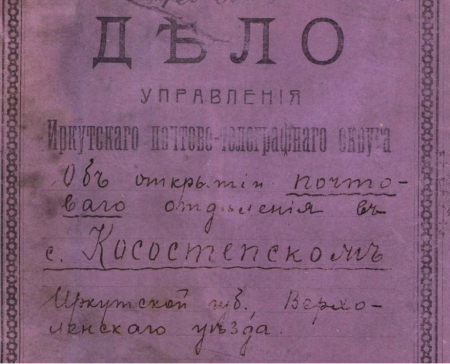 ДѢЛО
УПРАВЛЕНІЯ
Иркутскаго почтово-телеграфнаго округа
Объ открытіи почто-
ваго отдѣленія въ
с. Косостепскомъ
Иркутской губ. Верхо-
ленскаго уѣзда.